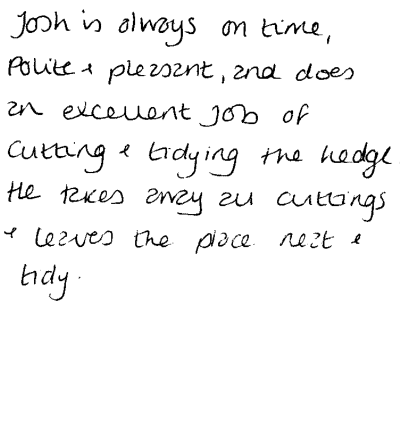 Josh is always on time,
Polite & pleasant, and does
an excellent job of
cutting & tidying the hedge.
He takes away all cuttings
& leaves the place neat &
tidy.